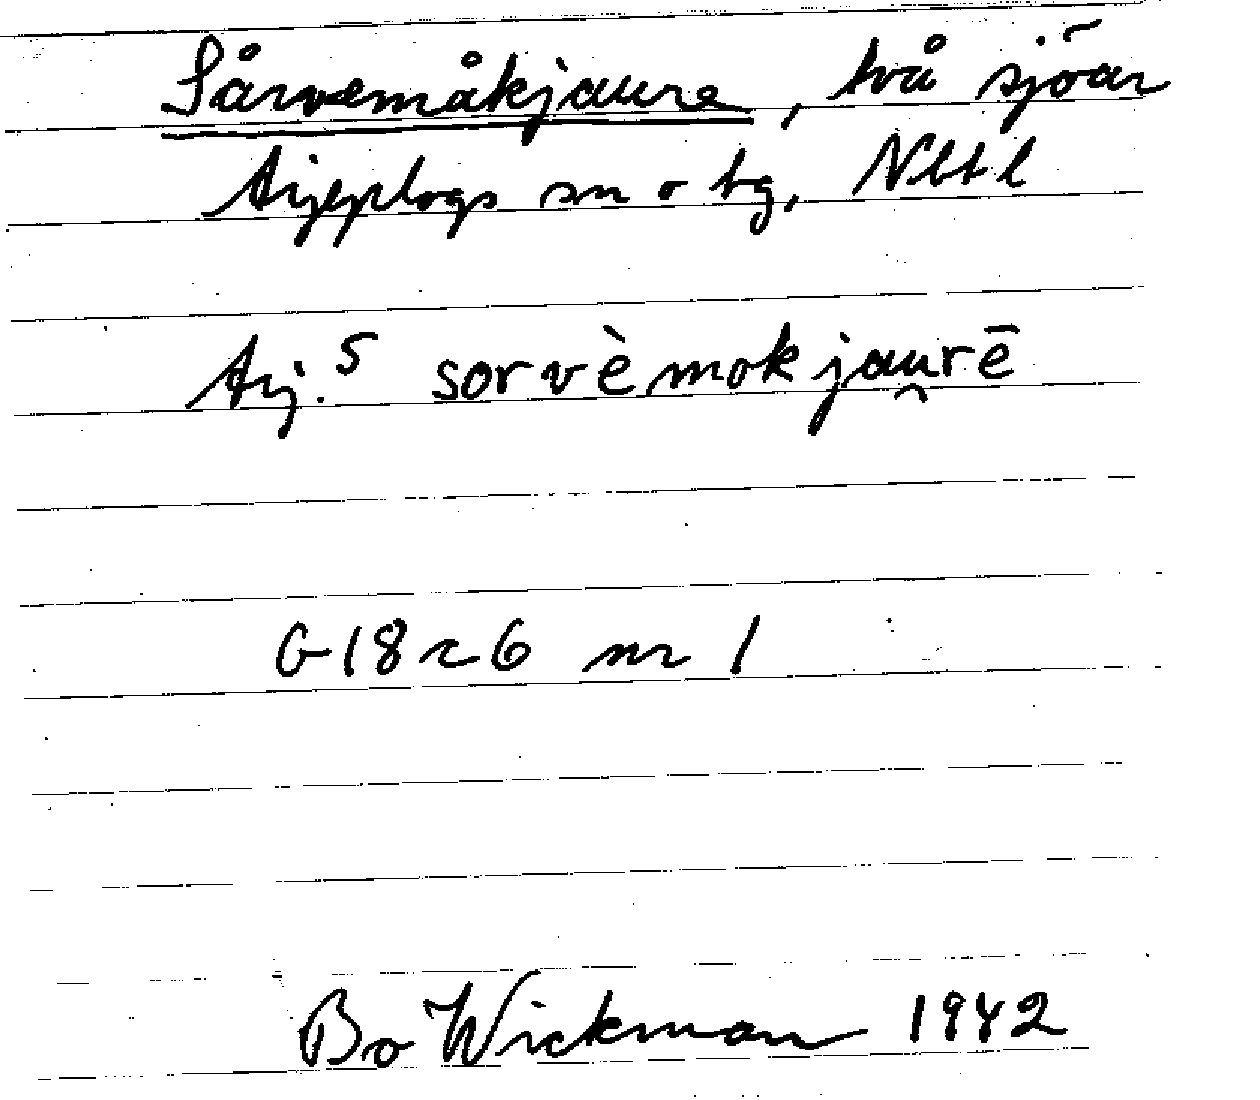 Sårvemåkjaure, två sjöar
Arjeplogs sn o tg, Nbt l
Arj. S sorvèmokjau̯rē
G18c6 nr 1
Bo Wickman 1942